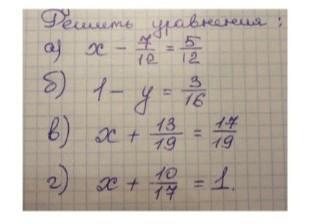 Решить уравнения:
а) x - 7/12 = 5/12
б) 1 - y = 3/16
в) x + 13/19 = 17/19
г) x + 10/17 = 1.